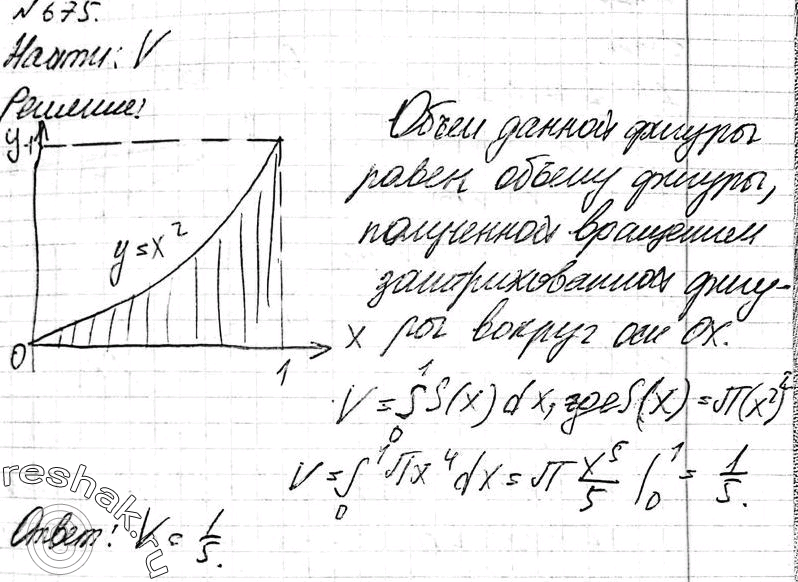 № 675.
Найти: V
Решение:
y 1
y = x²
0 1 x
Объем данной фигуры
равен объему фигуры,
полученной вращением
заштрихованной фигу-
ры вокруг оси Ox.
V = ∫₀¹ S(x) dx, где S(x) = π(x²)²
V = ∫₀¹ πx⁴ dx = π x⁵/5 |₀¹ = 1/5.
Ответ: V = 1/5.
reshak.ru